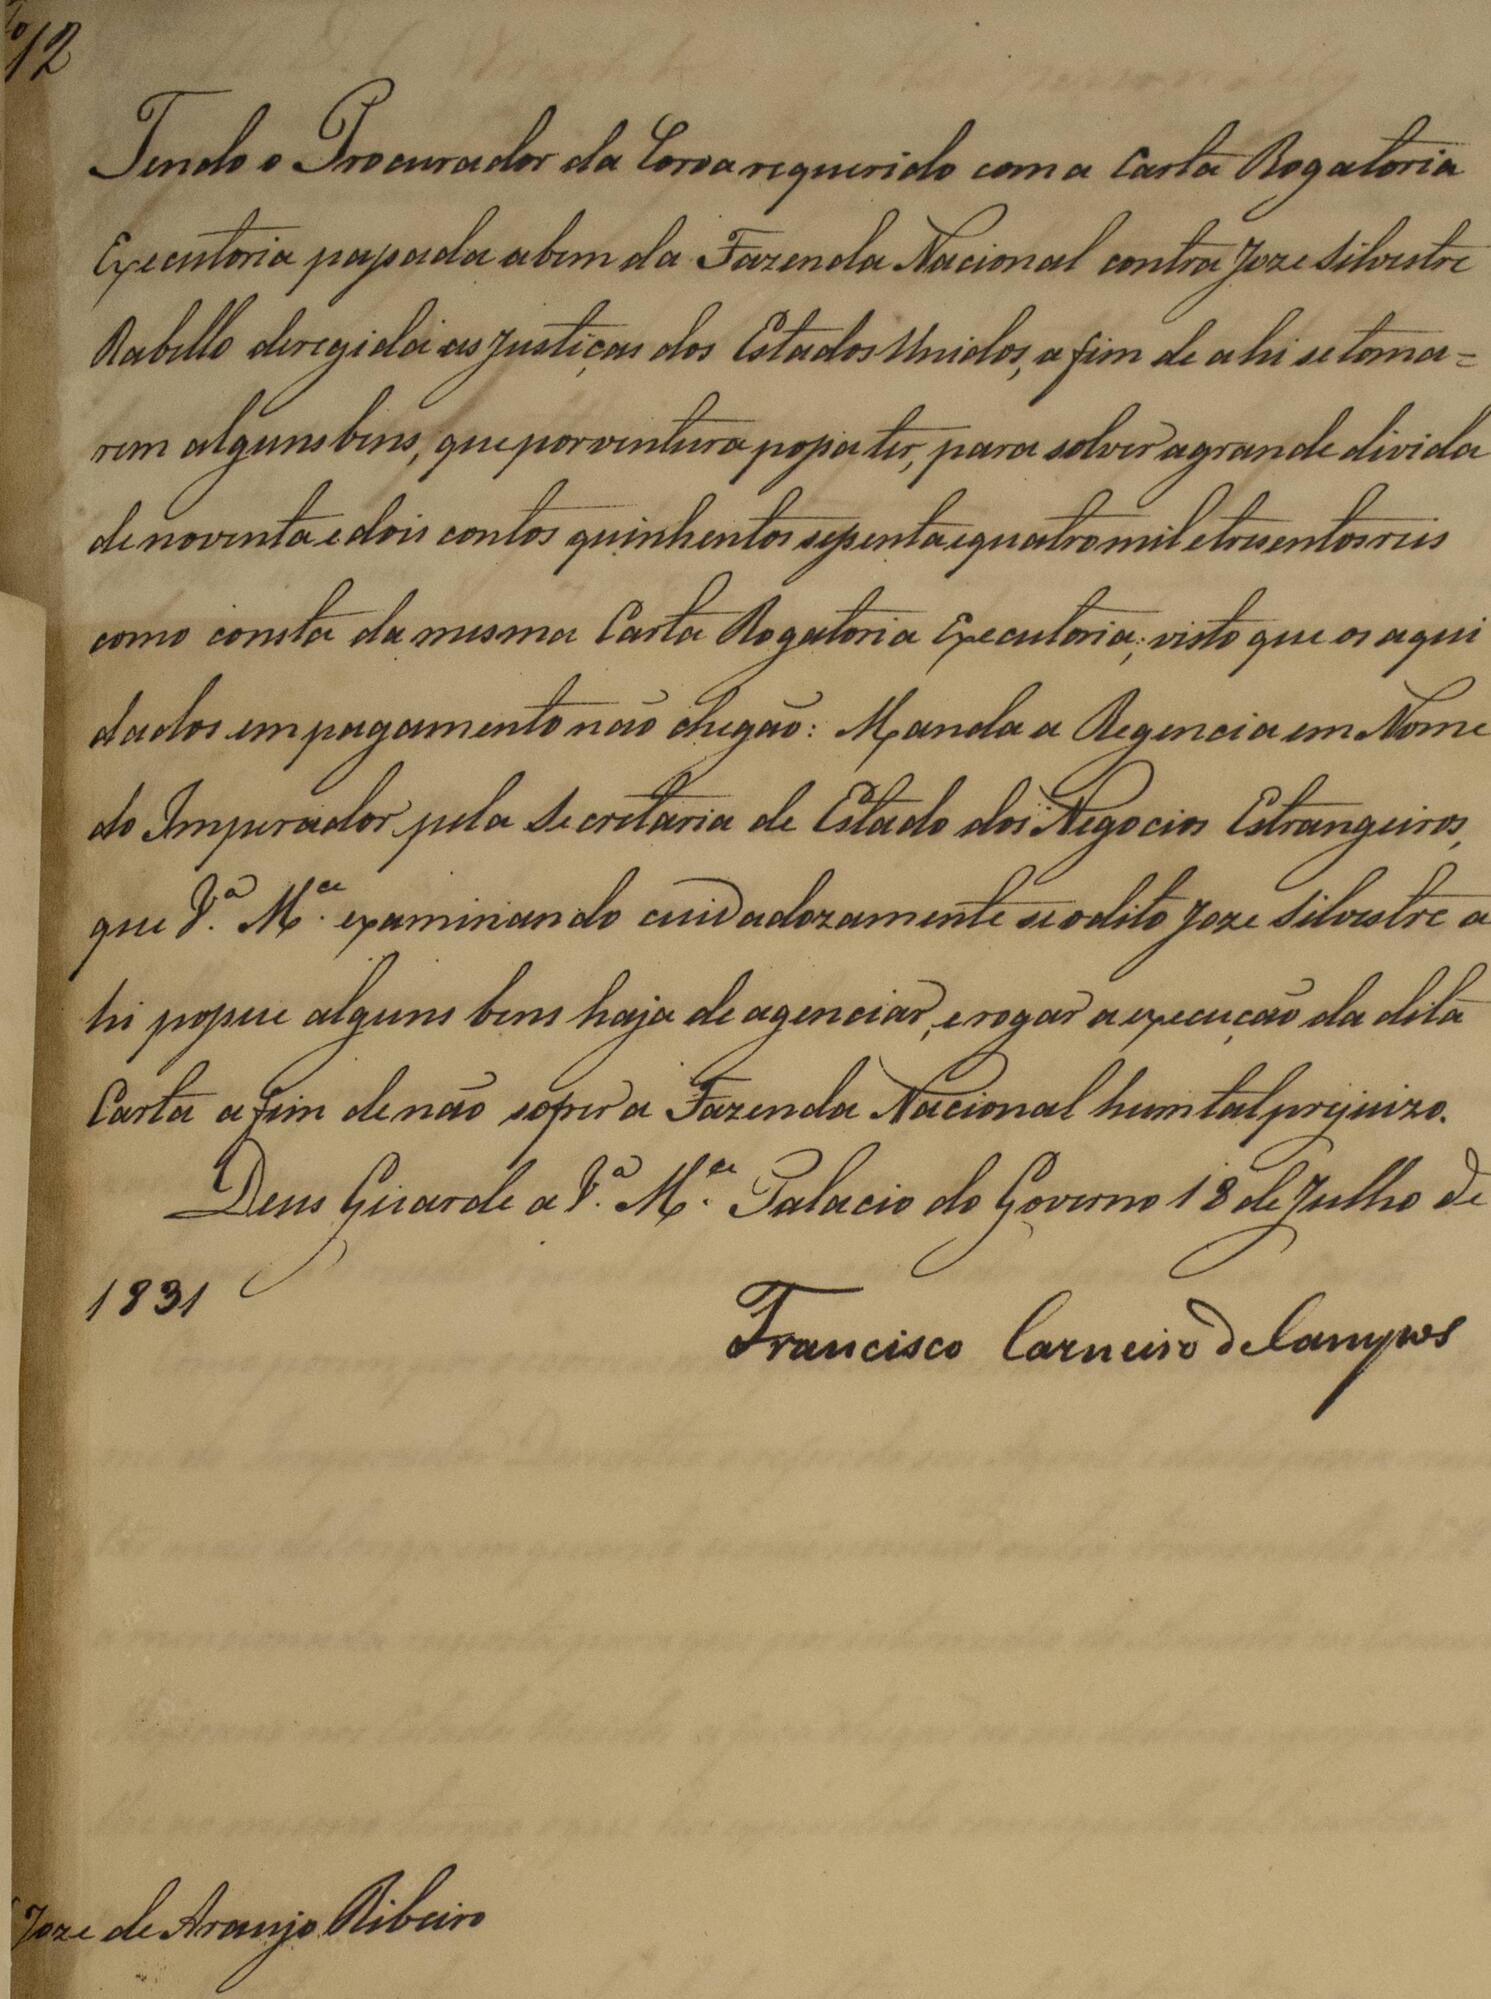 12
Tendo o Procurador da Coroa requerido com a Carta Rogatoria
Executoria passada a bem da Fazenda Nacional contra Joze Silvestre
Rabello deregida as Justiças dos Estados Unidos, a fim de ahi se toma=
rem alguns bens, que porventura possa ter, para solver a grande divida
de noventa e dois contos quinhentos sessenta e quatro mil e tresentos reis
como consta da mesma Carta Rogatoria Executoria; visto que os aqui
dados em pagamento não chegão: Manda a Regencia em Nome
do Imperador pela Secretaria de Estado dos Negocios Estrangeiros,
que V.ª M.ce examinando cuidadozamente se o dito Joze Silvestre a
hi possue alguns bens haja de agenciar, e rogar a execução da dita
Carta a fim de não sofrer a Fazenda Nacional hum tal prejuizo.
Deus Guarde a V.ª M.ce Palacio do Governo 18 de Julho de
1831
Francisco Carneiro de Campos
Joze de Araujo Ribeiro